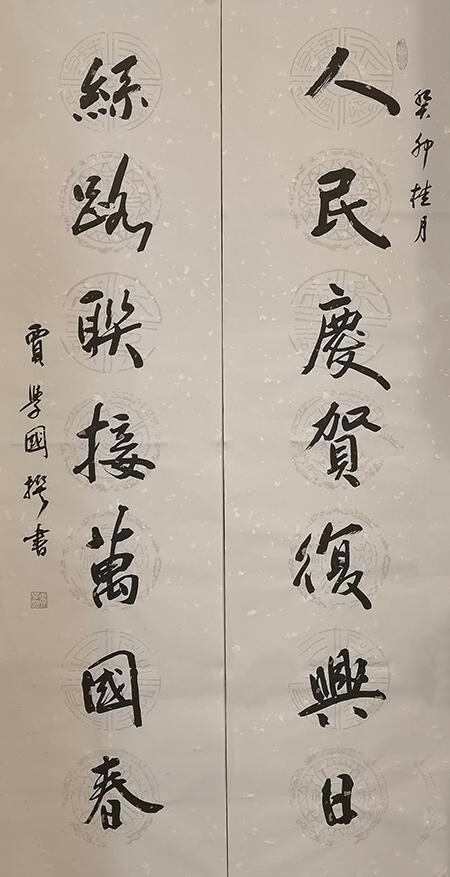 癸卯桂月
人民慶賀復興日
絲路聯接萬國春
賈學國撰書